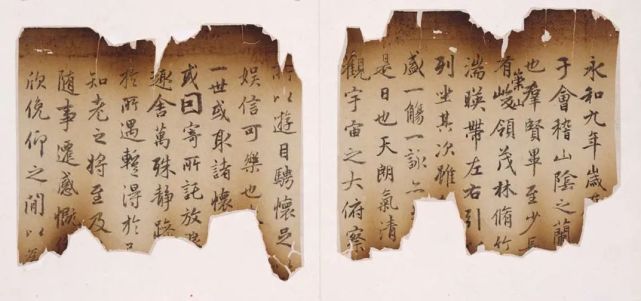 永和九年歲
于會稽山陰之蘭
也羣賢畢至少長
有崇山峻領茂林脩竹
湍暎帶左右引
列坐其次雖
盛一觴一詠
是日也天朗氣清
觀宇宙之大俯察
所以遊目騁懷足
娛信可樂也
一世或取諸懷
或因寄所託放
趣舍萬殊靜躁
於所遇蹔得於
知老之將至及
隨事遷感慨
欣俛仰之閒以